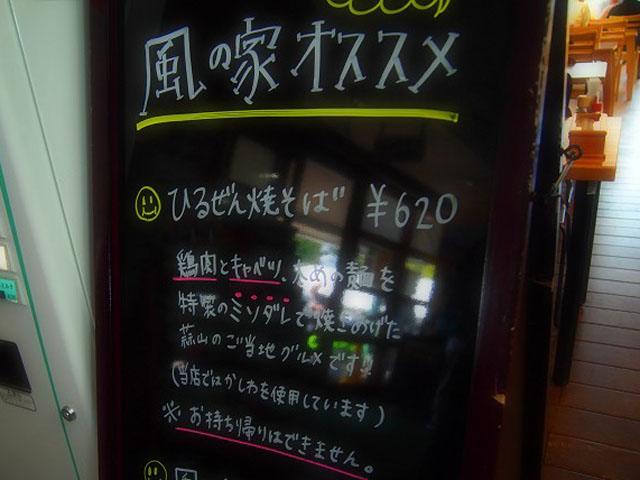 風の家オススメ
ひるぜん焼そば ¥620
鶏肉とキャベツ、太めの麺を
特製のミソダレで焼きあげた
蒜山のご当地グルメです!!
(当店ではかしわを使用しています)
※お持ち帰りはできません。